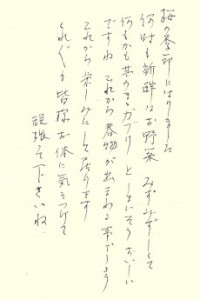 桜の季節になりました
何時も新鮮なお野菜 みずみずしくて
何もかも丸のまゝガブリとしたいそうおいしい
ですね これから春物が出まわる事でしょう
これから楽しみにして居ります
くれぐれも 皆様お体に気をつけて
頑張って下さいね